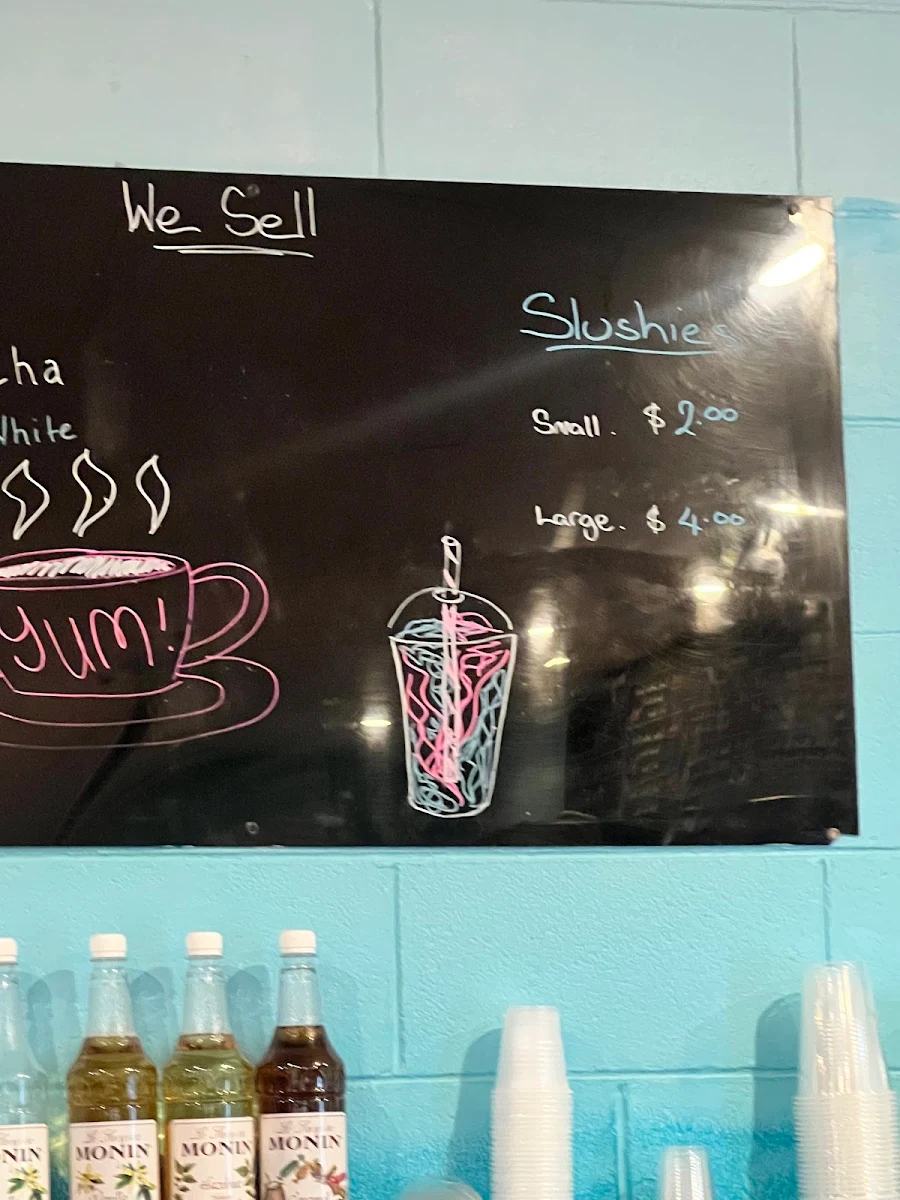 We Sell
White
YUM!
Slushies
Small. $ 2.00
Large. $ 4.00
MONIN
MONIN
MONIN